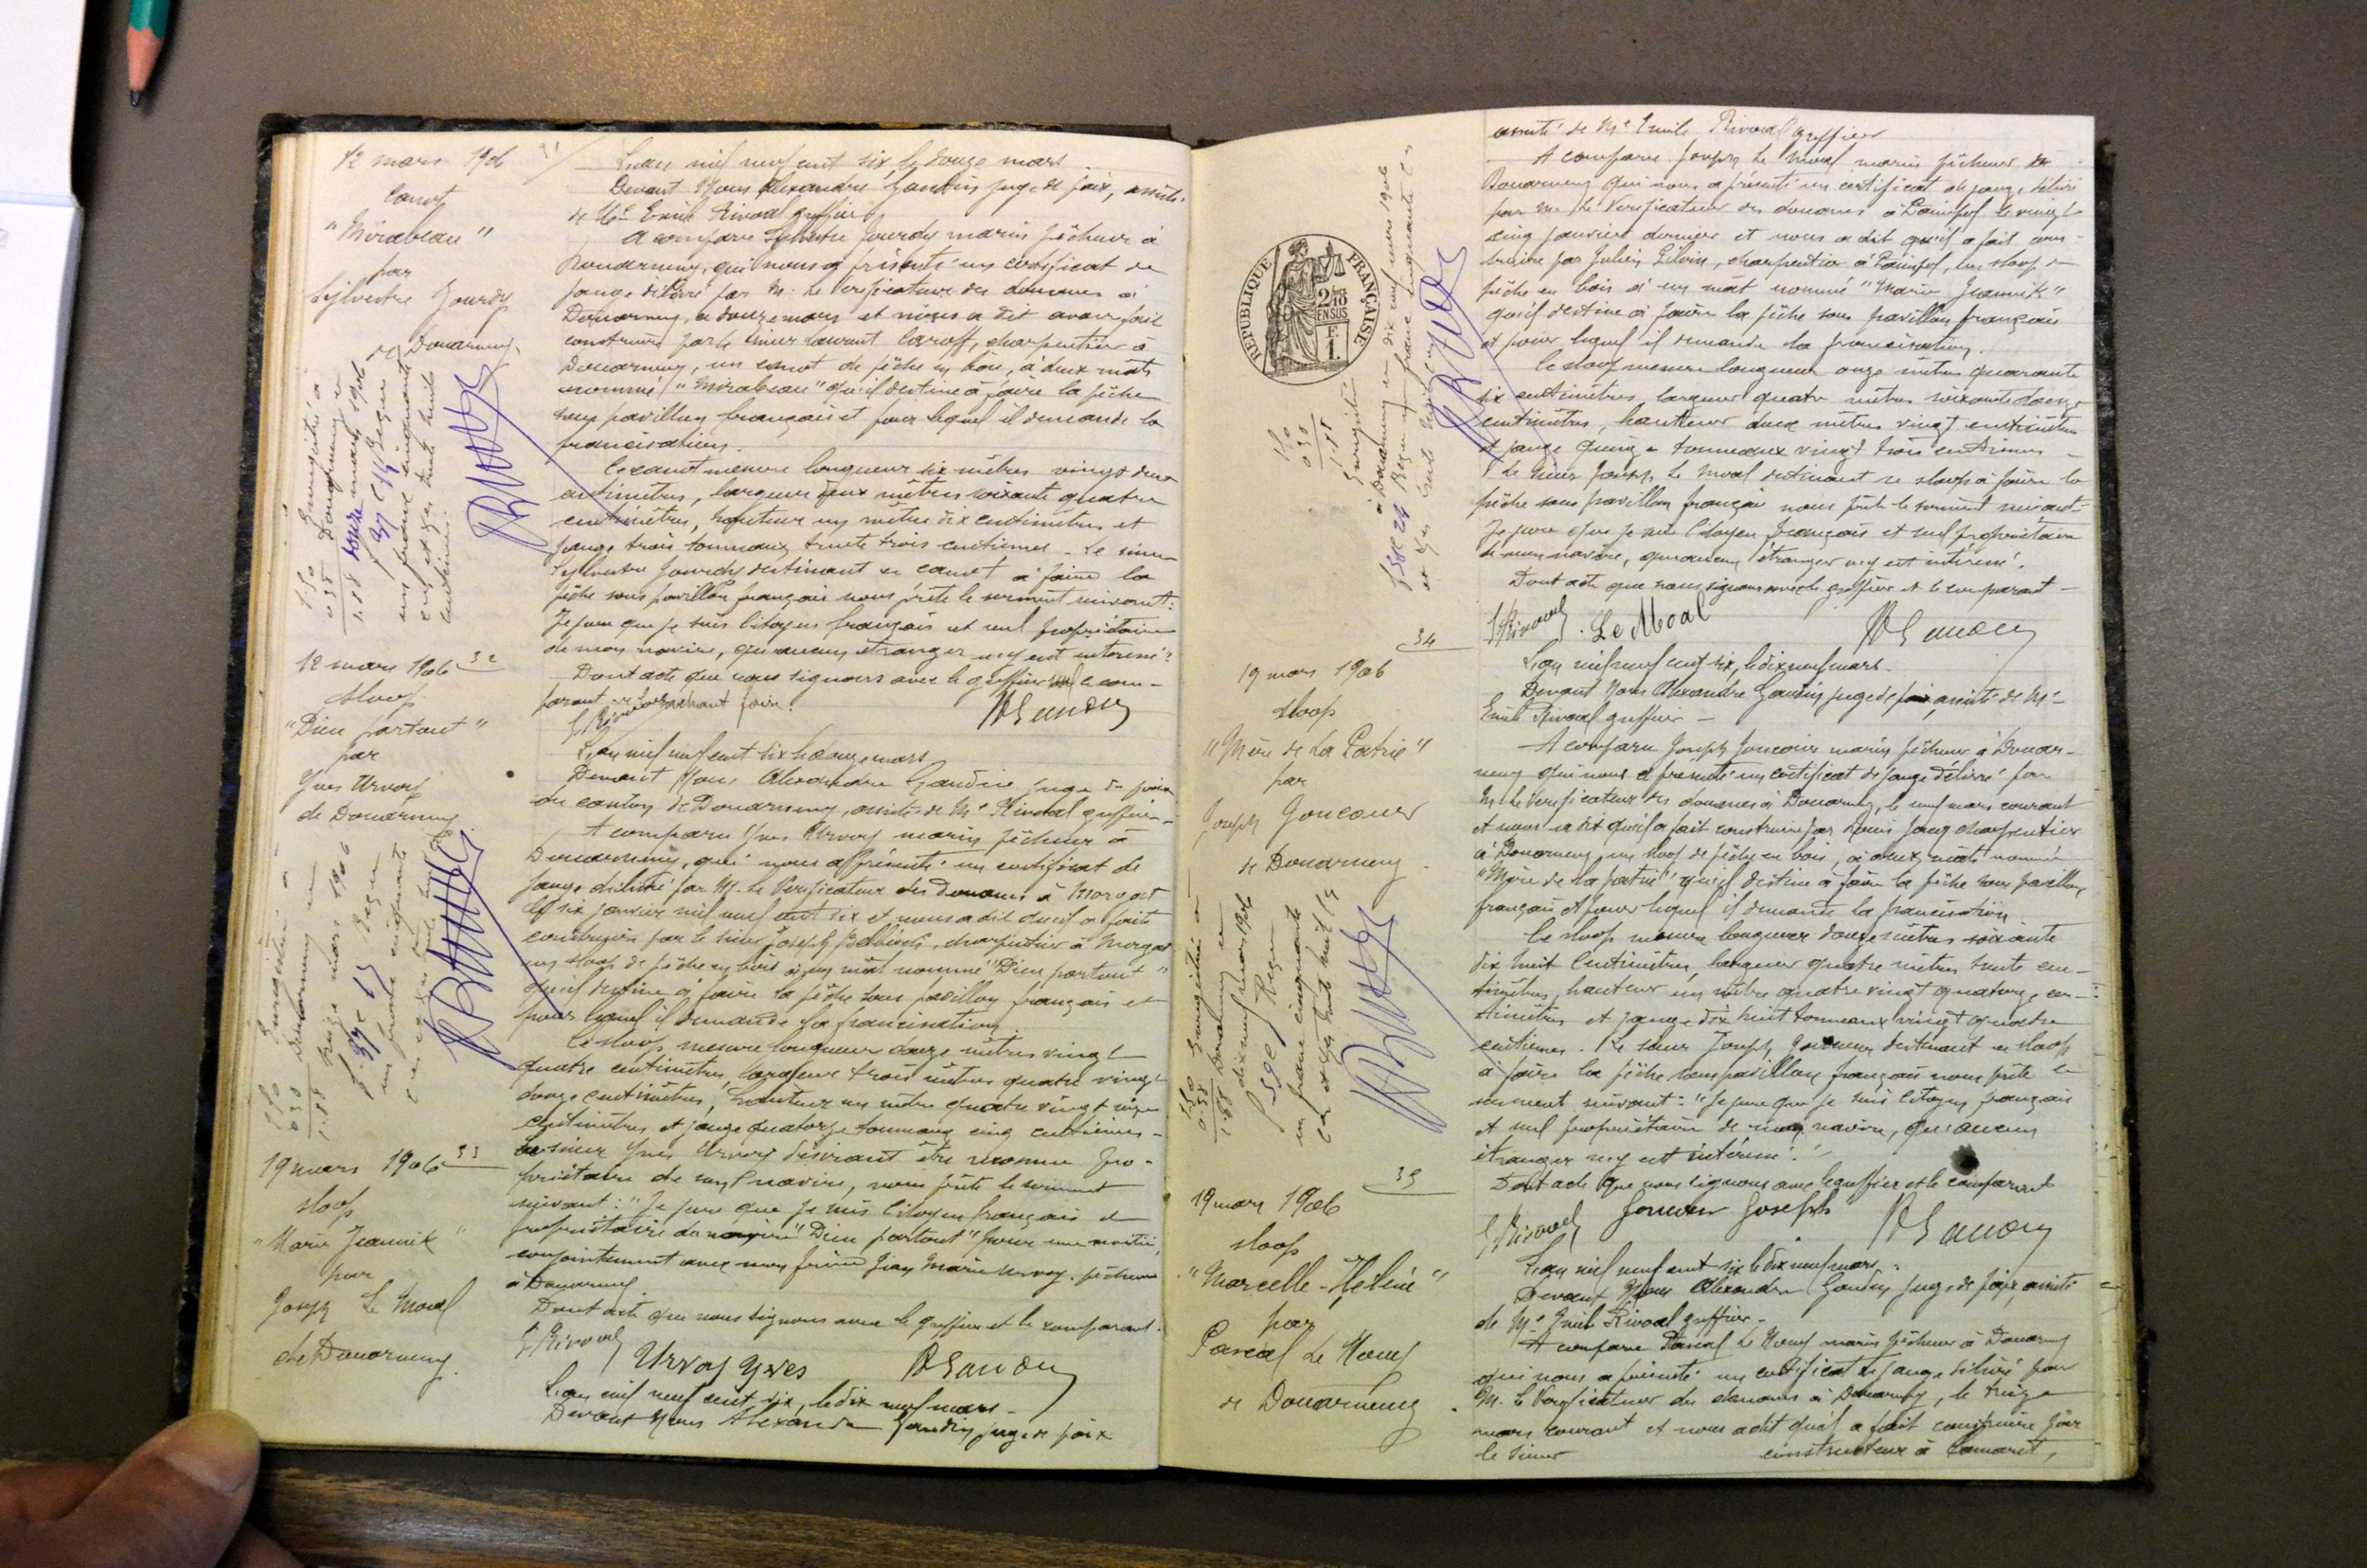 12 mars 1906
Canot
"Mirabeau"
par
Sylvestre Jourdy
de Douarnenez
31
L'an mil neuf cent six le douze mars
Devant Nous Alexandre Gaudin juge de paix, assisté
de Me Emile Rivoal greffier
A comparu Sylvestre Jourdy marin pêcheur à
Douarnenez, qui nous a présenté un certificat de
jauge délivré par M. le Vérificateur des douanes à
Douarnenez, le douze mars et nous a dit avoir fait
construire par le sieur Laurent charpentier à
Douarnenez, un canot de pêche en bois, à deux mâts
nommé "Mirabeau" qu'il destine à faire la pêche
sous pavillon français et pour lequel il demande la
francisation.
Ce canot mesure longueur six mètres vingt deux
centimètres, largeur deux mètres soixante quatre
centimètres, hauteur un mètre dix centimètres et
jauge trois tonneaux trente trois centièmes - Le sieur
Sylvestre Jourdy destinant ce canot à faire la
pêche sous pavillon français nous prête le serment suivant:
Je jure que je suis Citoyen français et seul propriétaire
de mon navire, qu'aucun étranger n'y est intéressé
Dont acte que nous signons avec le greffier le com-
parant ne sachant faire.
E Rivoal
A Gaudin
Enregistré à
Douarnenez le
douze mars 1906
un franc cinquante
1.50
0.38
1.88
12 mars 1906
32
sloop
"Dieu partout"
par
Yves Urvoy
de Douarnenez
L'an mil neuf cent six le douze mars
Devant Nous Alexandre Gaudin juge de paix
du canton de Douarnenez, assisté de Me Rivoal greffier -
A comparu Yves Urvoy marin pêcheur à
Douarnenez, qui nous a présenté un certificat de
jauge délivré par M. le Vérificateur des Douanes à Morgat
le six janvier mil neuf cent six et nous a dit qu'il a fait
construire par le sieur Joseph charpentier à Morgat
un sloop de pêche en bois à un mât nommé "Dieu partout"
qu'il destine à faire la pêche sous pavillon français et
pour lequel il demande la francisation
Ce sloop mesure longueur douze mètres vingt
quatre centimètres, largeur trois mètres quatre vingt
douze centimètres, hauteur un mètre quatre vingt seize
centimètres et jauge quatorze tonneaux cinq centièmes -
Le sieur Yves Urvoy désirant être reconnu pro-
priétaire de son navire, nous prête le serment
suivant: "Je jure que je suis Citoyen français et
propriétaire du navire "Dieu partout" pour une moitié,
conjointement avec mon frère Jean Marie Urvoy, pêcheur
à Douarnenez
Dont acte que nous signons avec le greffier et le comparant.
E Rivoal
Urvoy Yves
A Gaudin
Enregistré à
Douarnenez le
treize mars 1906
un franc cinquante
1.50
0.38
1.88
19 mars 1906
33
sloop
"Marie Jeannik"
par
Joseph Le Moal
de Douarnenez.
L'an mil neuf cent six, le dix neuf mars -
Devant Nous Alexandre Gaudin juge de paix
assisté de Me Emile Rivoal greffier
A comparu Joseph Le Moal marin pêcheur à
Douarnenez qui nous a présenté un certificat de jauge délivré
par M. le Vérificateur des douanes à Paimpol le vingt
cinq janvier dernier et nous a dit qu'il a fait cons-
truire par Julien charpentier à Paimpol, un sloop de
pêche en bois à un mât nommé "Marie Jeannik"
qu'il destine à faire la pêche sous pavillon français
et pour lequel il demande la francisation.
Ce sloop mesure longueur onze mètres quarante
six centimètres, largeur quatre mètres soixante
centimètres, hauteur deux mètres vingt centimètres
et jauge quinze tonneaux vingt trois centièmes -
Le sieur Joseph Le Moal destinant ce sloop à faire la
pêche sous pavillon français nous prête le serment suivant:
Je jure que je suis Citoyen français et seul propriétaire
de mon navire, qu'aucun étranger n'y est intéressé.
Dont acte que nous signons avec le greffier et le comparant -
E Rivoal
Le Moal
A Gaudin
RÉPUBLIQUE FRANÇAISE
2/10
EN SUS
1 F.
Enregistré
à Douarnenez le dix neuf mars 1906
un franc cinquante
1.50
0.38
1.88
34
19 mars 1906
sloop
"Mère de la Patrie"
par
Joseph Joncour
de Douarnenez
L'an mil neuf cent six, le dix neuf mars.
Devant Nous Alexandre Gaudin juge de paix, assisté de Me
Emile Rivoal greffier -
A comparu Joseph Joncour marin pêcheur à Douar-
nenez qui nous a présenté un certificat de jauge délivré par
M. le Vérificateur des douanes à Douarnenez, le neuf mars courant
et nous a dit qu'il a fait construire par charpentier
à Douarnenez un sloop de pêche en bois, à deux mâts nommé
"Mère de la patrie" qu'il destine à faire la pêche sous pavillon
français et pour lequel il demande la francisation
Ce sloop mesure longueur douze mètres soixante
dix huit centimètres, largeur quatre mètres trente cen-
timètres, hauteur un mètre quatre vingt quatorze cen-
timètres et jauge dix huit tonneaux vingt quatre
centièmes. Le sieur Joseph Joncour destinant ce sloop
à faire la pêche sous pavillon français nous prête le
serment suivant: "Je jure que je suis Citoyen français
et seul propriétaire de mon navire, qu'aucun
étranger n'y est intéressé."
Dont acte que nous signons avec le greffier et le comparant
E Rivoal
Joncour Joseph
A Gaudin
Enregistré à
Douarnenez le
dix neuf mars 1906
un franc cinquante
1.50
0.38
1.88
35
19 mars 1906
sloop
"Marcelle-Hélène"
par
Pascal Le Hoeuf
de Douarnenez
L'an mil neuf cent six le dix neuf mars.
Devant Nous Alexandre Gaudin juge de paix, assisté
de Me Emile Rivoal greffier -
A comparu Pascal Le Hoeuf marin pêcheur à Douarnenez
qui nous a présenté un certificat de jauge délivré par
M. le Vérificateur des douanes à Douarnenez, le treize
mars courant et nous a dit qu'il a fait construire par
le sieur constructeur à Camaret,